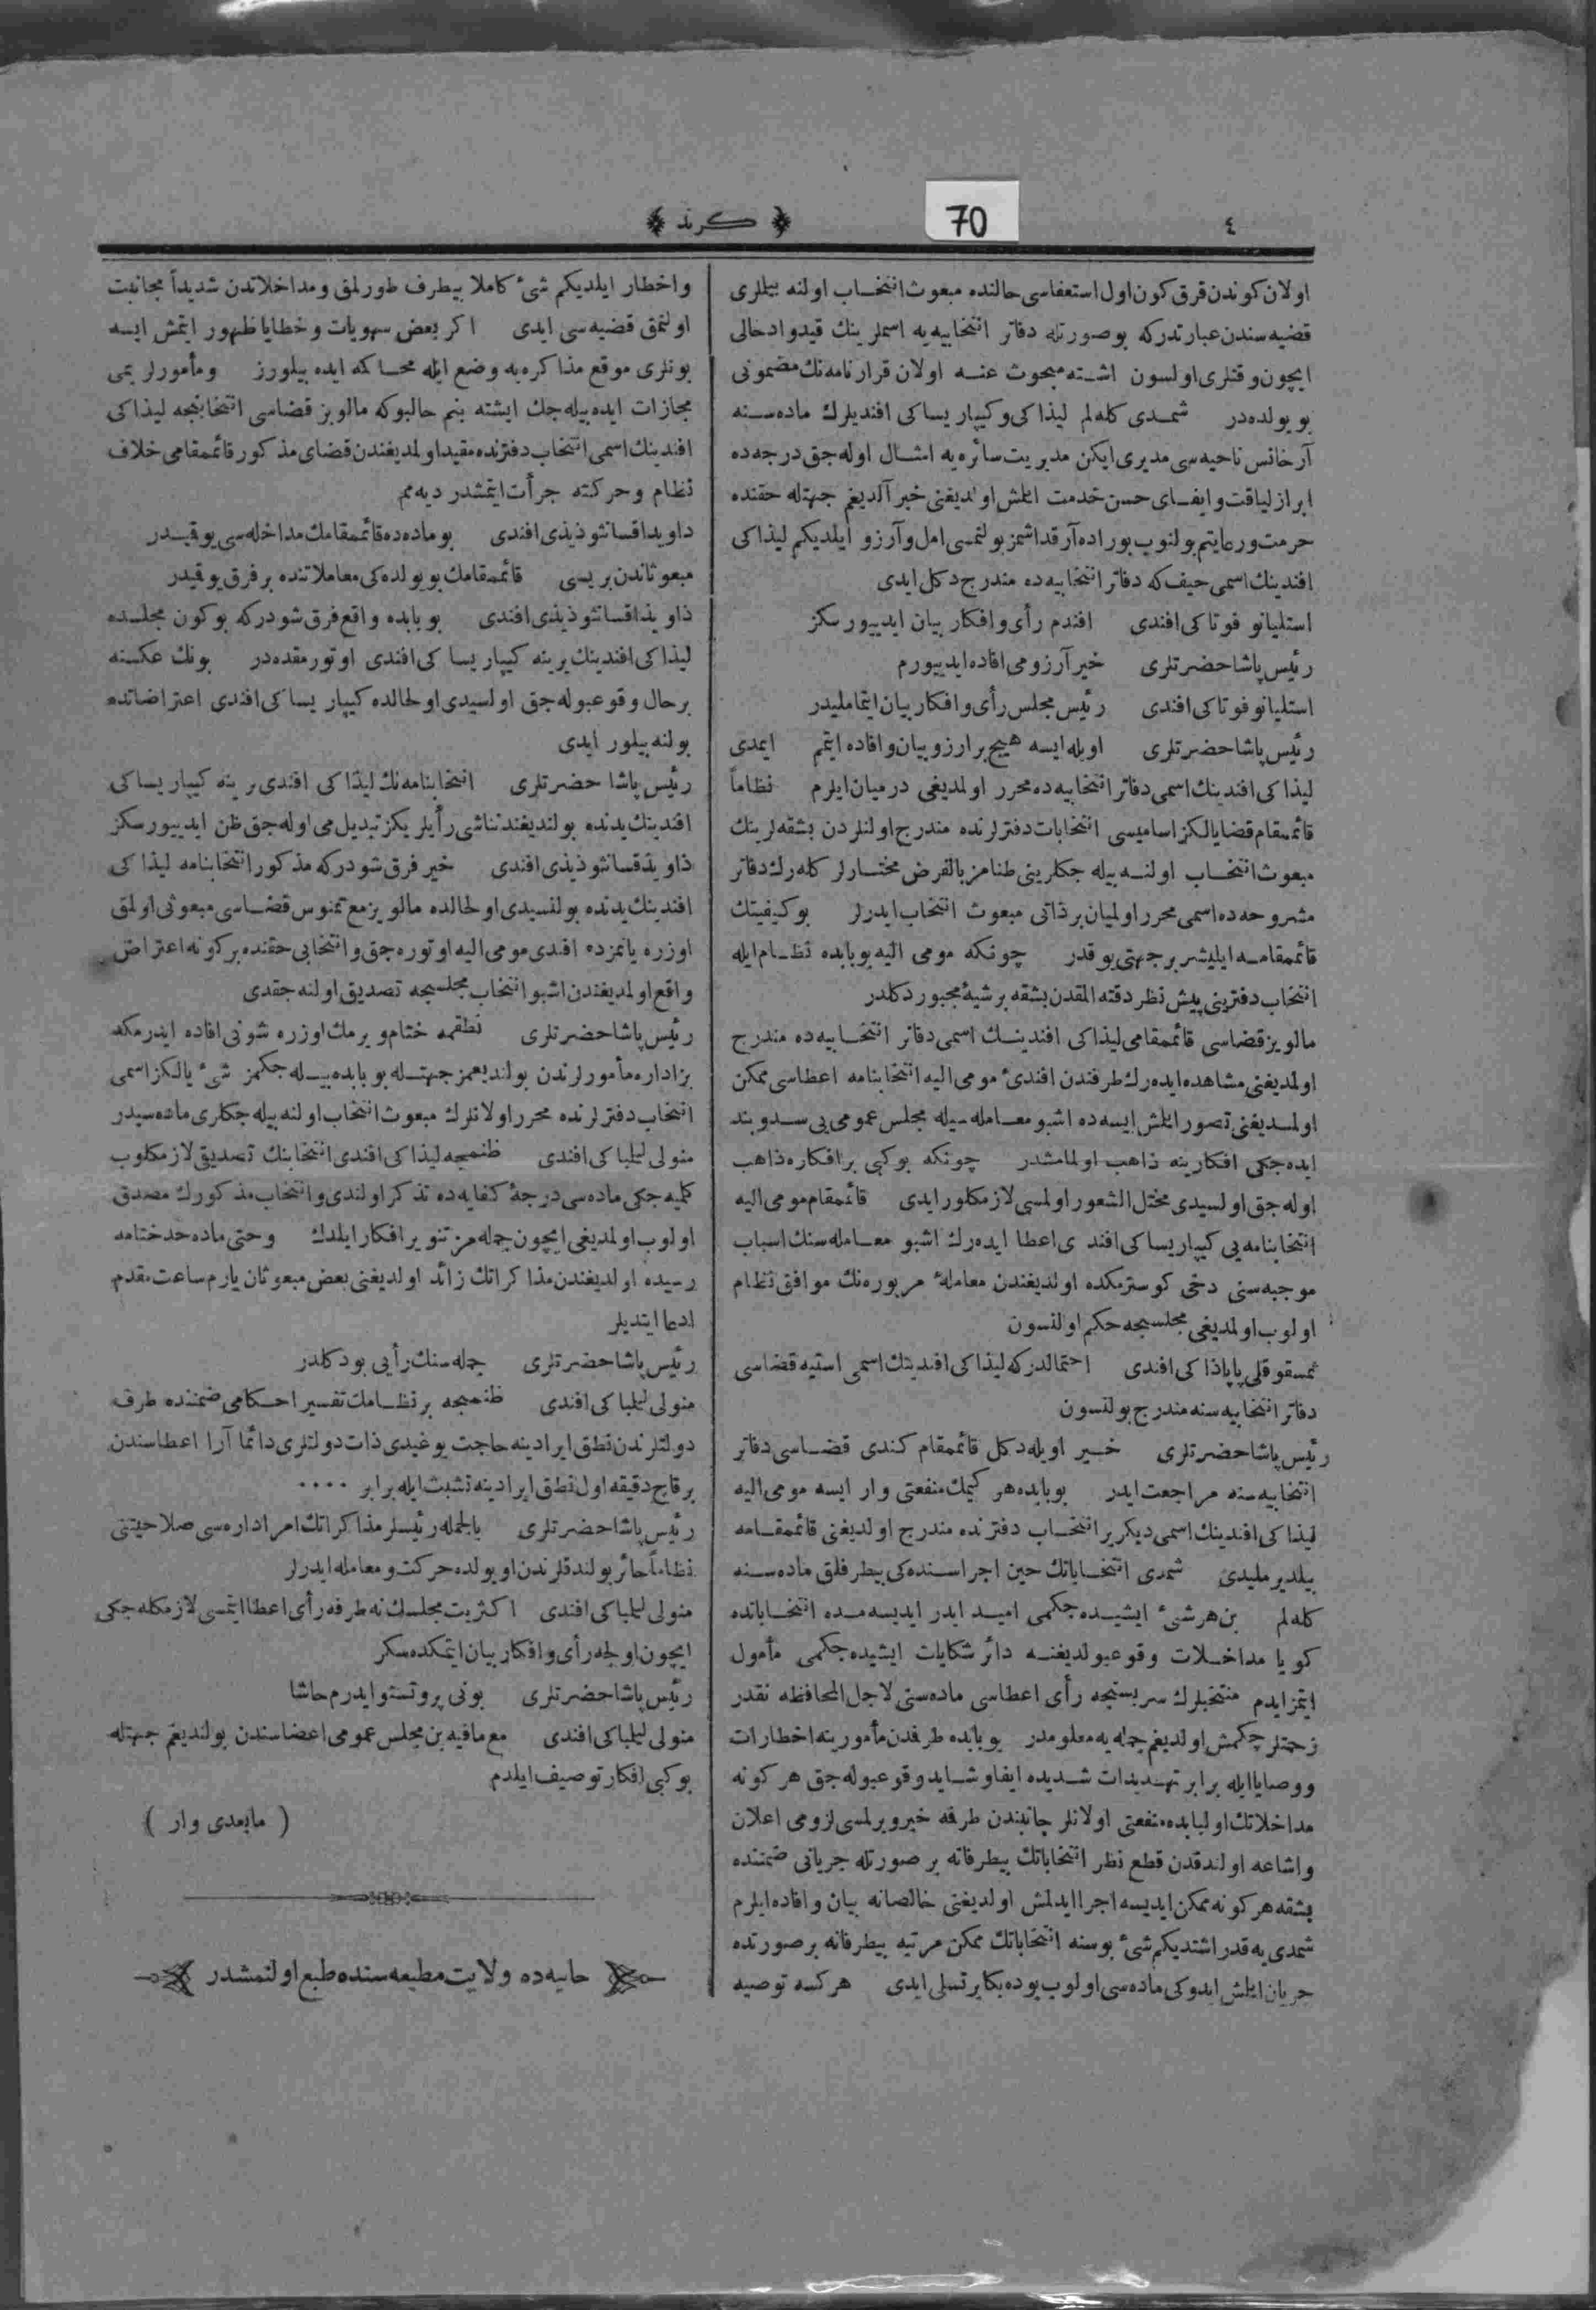 ٤
70
﴿ كرید ﴾
اولان كوندن قرق كون اول استعفاسی حالنده مبعوث انتخـاب اولنه بیللری
قضیه سندن عبارتدركه بو صورتله دفاتر انتخابیه یه اسملرینك قید و ادخالی
ایچون وقتلری اولسون اشـته مبحوث عنـه اولان قرارنامه نك مضمونی
بو یولده در شمـدی كله لم لیذاكی و كیپاریساكی افندیلرك ماده سـنه
آرخانس ناحیه سی مدیری ایكن مدیریت سائره یه امثـال اوله جق درجه ده
ابراز لیاقت و ایفـای حسن خدمت ایتلش اولدیغنی خبر آلدیغم جهتله حقنده
حرمت و رعایتم بولنوب بوراده آرقداشمز بولنمسی امل و آرزو ایلدیكم لیذاكی
افندینك اسمی حیف كه دفاتر انتخابیه ده مندرج دكل ایدی
استلیانو فوتاكی افندی افندم رأی و افكار بیان ایدییورسكز
رئیس پاشا حضرتلری خیر آرزومی افاده ایدییورم
استلیانو فوتاكی افندی رئیس مجلس رأی و افكار بیان ایتماملیدر
رئیس پاشا حضرتلری اویله ایسه هیچ بر ارزو بیان و افاده ایتمم ایمدی
لیذاكی افندینك اسمی دفاتر انتخابیه ده محرر اولمدیغی درمیان ایلرم نظاماً
قائممقام قضا یالكز اسامیسی انتخابات دفترلرنده مندرج اولنلردن بشقه لرینك
مبعوث انتخـاب اولنـه بیله جكلرینی طنامز بالفرض مختـارلر كله رك دفاتر
مشروحه ده اسمی محرر اولمیان بر ذاتی مبعوث انتخاب ایدرلر بو كیفیتك
قائممقامـه ایلیشر بر جهتی یوقدر چونكه مومی الیه بو بابده نظـام ایله
انتخاب دفترینی پیش نظر دقته المقدن بشقه بر شیئه مجبور دكلدر
مالویز قضاسی قائممقامی لیذاكی افندینـك اسمی دفاتر انتخـابیه ده مندرج
اولمدیغنی مشاهده ایده رك طرفندن افندیٔ مومی الیه انتخابنامه اعطاسی ممكن
اولمـدیغنی تصور ایتلش ایسه ده اشبو معـامله سیله مجلس عمومی یی سـد و بند
ایده جكی افكارینه ذاهب اولمامشدر چونكه بو كبی بر افكاره ذاهب
اوله جق اولسیدی مختل الشعور اولمسی لازمكلور ایدی قائممقام مومی الیه
انتخابنامه یی كیپاریساكی افندی اعطا ایده رك اشبو معـامله سنك اسباب
موجبه سنی دخی كوسترمكده اولدیغندن معاملهٔ مزبوره نك موافق نظام
اولوب اولمدیغی مجلسجه حكم اولنسون
ثمسقوقلی پاپاذاكی افندی احتمالدركه لیذاكی افندینك اسمی استیه قضاسی
دفاتر انتخابیه سنه مندرج بولنسون
رئیس پاشا حضرتلری خـیر اویله دكل قائممقام كندی قضـاسی دفاتر
انتخابیه سنه مراجعت ایدر بو بابده هر كیمك منفعتی وار ایسه مومی الیه
لیذاكی افندینك اسمی دیكر بر انتخـاب دفترنده مندرج اولدیغنی قائممقـامه
بیلدیرملیدی شمدی انتخـاباتك حین اجراسـنده كی بیطرفلق ماده سـنه
كله لم بن هر شیٔ ایشیـده جكمی امیـد ایدر ایدیسه مـده انتخـاباتده
كویا مداخـلات وقوعبولدیغنـه دائر شكایات ایشیده جكمی مأمول
ایتمز ایدم منتخبلرك سربستیجه رأی اعطاسی ماده سنی لاجل المحافظه نقدر
زحمتلر چكمش اولدیغم جمله یه معلومدر بو بابده طرفمدن مأمورینه اخطارات
و وصایا ایله برابر تهـدیدات شـدیده ایفا و شـاید وقوعبوله جق هر كونه
مداخلاتك اولبابده منفعتی اولانلر جانبندن طرفه خبر ویرلمسی لزومی اعلان
و اشاعه اولندقدن قطع نظر انتخاباتك بیطرفانه بر صورتله جریانی ضمننده
بشقه هر كونه ممكن ایدیسه اجرا ایدلمش اولدیغنی خالصانه بیان و افاده ایلرم
شمدی یه قدر اشتدیكم شیٔ بو سنه انتخاباتك ممكن مرتبه بیطرفانه بر صورتده
جریان ایتلش ایدوكی ماده سی اولوب بو ده بكا بر تسلی ایدی هر كسه توصیه
و اخطار ایلدیكم شیٔ كاملا بیطرف طورلمق و مداخلاتدن شدیداً مجانبت
اولنمق قضیه سی ایدی اكر بعض سهویات و خطایا ظهور ایتمش ایسه
بونلری موقع مذاكره یه وضع ایله محـاكمه ایده بیلورز و مأمورلریمی
مجازات ایده بیله جك ایشته بنم حالبوكه مالویز قضاسی انتخابنجه لیذاكی
افندینك اسمی انتخاب دفترنده مقید اولمدیغندن قضای مذكور قائممقامی خلاف
نظام و حركته جرأت ایتمشدر دیه مم
داوید اقسانثوذیذی افندی بو ماده ده قائممقامك مداخله سی یوقیـدر
مبعوثاندن بریسی قائممقامك بو یولده كی معاملاتنده بر فرق یوقیدر
ذاویذ اقسانثوذیذی افندی بو بابده واقع فرق شودركه بوكون مجلسده
لیذاكی افندینك یرینه كیپاریساكی افندی اوتورمقده در بونك عكسنه
بر حال وقوعبوله جق اولسیدی اولحالده كیپاریساكی افندی اعتراضاتده
بولنه بیلور ایدی
رئیس پاشا حضرتلری انتخابنامه نك لیذاكی افندی یرینه كیپاریساكی
افندینك یدنده بولندیغندنناشی رأیلریكز تبدیل می اوله جق ظن ایدییورسكز
ذاویذ قسانثوذیذی افندی خیر فرق شودركه مذكور انتخابنامه لیذاكی
افندینك یدنده بولنسیدی اولحالده مالویز مع تمنوس قضـاسی مبعوثی اولمق
اوزره یانمزده افندی مومی الیه اوتوره جق و انتخابی حقنده بر كونه اعتراض
واقع اولمدیغندن اشبو انتخاب مجلسجه تصدیق اولنه جقدی
رئیس پاشا حضرتلری نطقمه ختام ویرمك اوزره شونی افاده ایدرمكه
بز اداره مأمورلرندن بولندیغمز جهتـله بو بابده بیـله جكمز شیٔ یالكز اسمی
انتخاب دفترلرنده محرر اولانلرك مبعوث انتخاب اولنه بیله جكلری ماده سیدر
منولی لیلیاكی افندی ظنمجه لیذاكی افندی انتخابنك تصدیقی لازمكلوب
كلمیه جكی ماده سی درجهٔ كفایه ده تذكر اولندی و انتخاب مذكورك مصدق
اولوب اولمدیغی ایچون جمله مز تنویر افكار ایلدك و حتی ماده حد ختامه
رسیده اولدیغندن مذاكراتك زائد اولدیغنی بعض مبعوثان یارم ساعت مقدم
ادعا ایتدیلر
رئیس پاشا حضرتلری جمله سنك رأیی بو دكلدر
منولی لیلیاكی افندی ظنمجه بر نظـامك تفسیر احـكامی ضمننده طرف
دولتلرندن نطق ایرادینه حاجت یوغیدی ذات دولتلری دائما آرا اعطاسندن
بر قاچ دقیقه اول نطق ایرادینه تشبث ایله برابر ....
رئیس پاشا حضرتلری بالجمله رئیسلر مذاكراتك امر اداره سی صلاحیتنی
نظاماً حائز بولندقلرندن او یولده حركت و معامله ایدرلر
منولی لیلیاكی افندی اكثریت مجلسك نه طرفه رأی اعطا ایتمسی لازمكله جكی
ایچون اولجه رأی و افكار بیان ایتمكده سكز
رئیس پاشا حضرتلری بونی پروتستو ایدرم حاشا
منولی لیلیاكی افندی مع مافیه بن مجلس عمومی اعضاسندن بولندیغم جهتله
بو كبی افكار توصیف ایلدم
( مابعدی وار )
حانیه ده ولایت مطبعه سنده طبع اولنمشدر